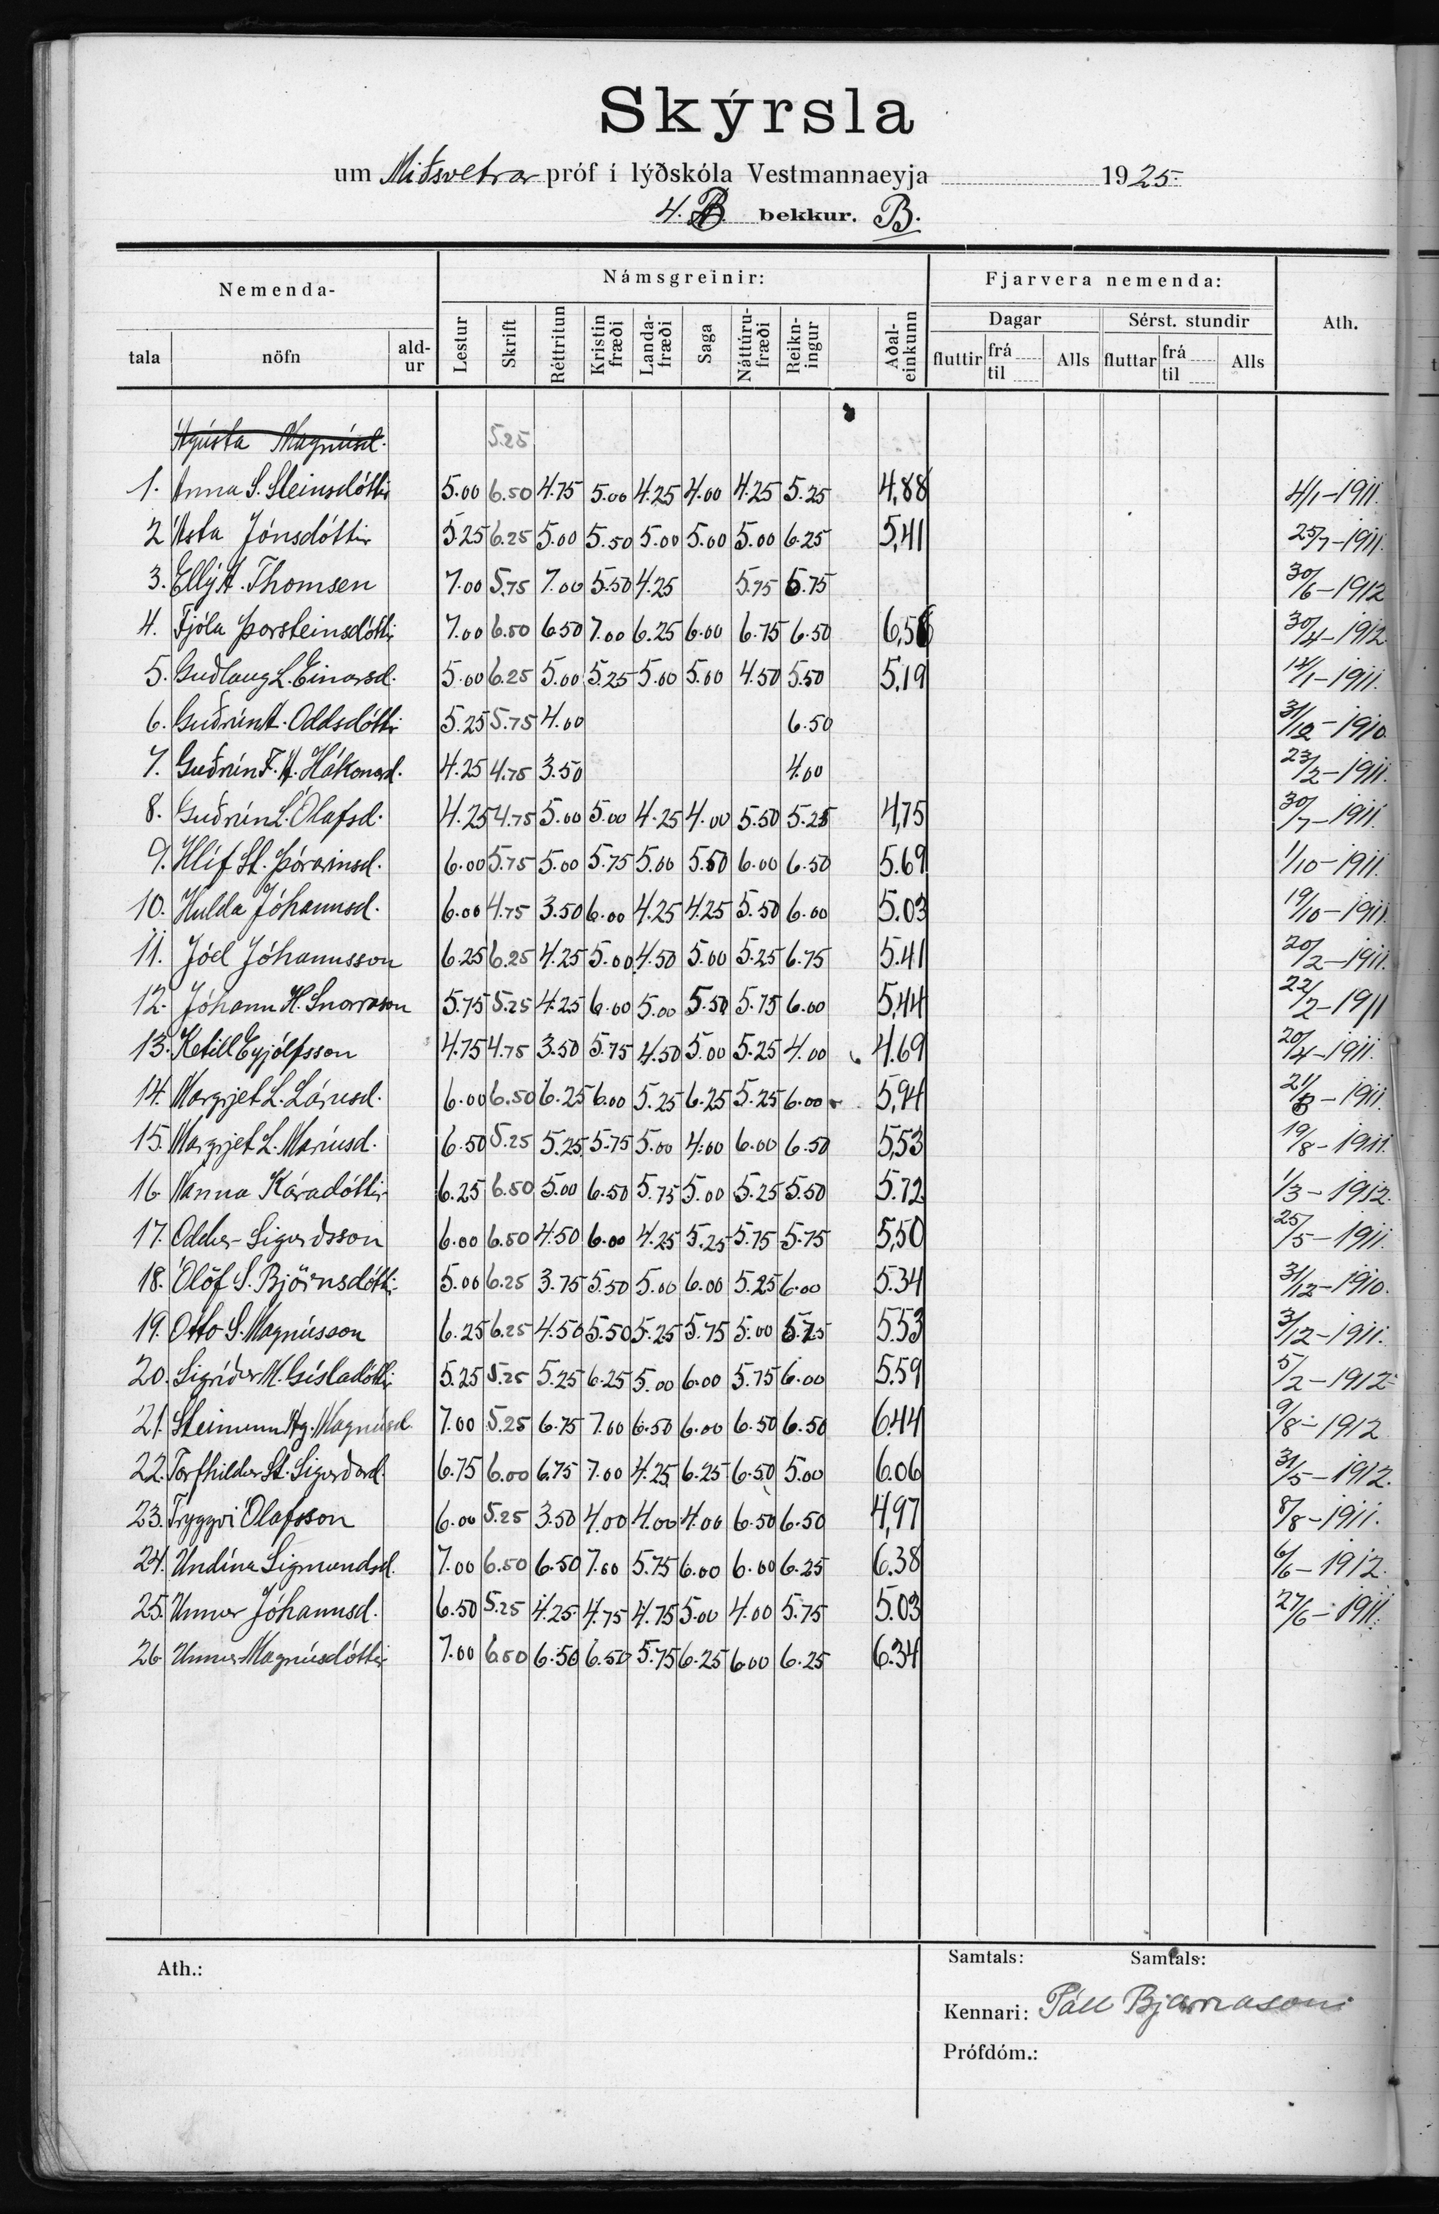 Skýrsla
um Miðsvetrar próf í lýðskóla Vestmannaeyja 1925.
4. B bekkur. B.
Nemenda- Námsgreinir: Fjarvera nemenda: Ath.
tala nöfn ald-ur Lestur Skrift Réttritun Kristin fræði Landa-fræði Saga Náttúru-fræði Reikn-ingur Aðal-einkunn Dagar Sérst. stundir
fluttir frá til Alls fluttar frá til Alls
Ágústa Magnúsd. 5.25
1. Anna S. Steinsdóttir 5.00 6.50 4.75 5.00 4.25 4.00 4.25 5.25 4,88 4/1-1911.
2 Ásta Jónsdóttir 5.25 6.25 5.00 5.50 5.00 5.00 5.00 6.25 5,41 25/7-1911.
3. Ellý A. Thomsen 7.00 5.75 7.00 5.50 4.25 5.75 6.75 30/6-1912
4. Fjóla Þorsteinsdóttir 7.00 6.50 6.50 7.00 6.25 6.00 6.75 6.50 6,56 30/4-1912
5. Guðlaug L. Einarsd. 5.00 6.25 5.00 5.25 5.00 5.00 4.50 5.50 5,19 14/1-1911.
6. Guðrún A. Oddsdóttir 5.25 5.75 4.00 6.50 31/12-1910
7. Guðrún F. A. Hákonard. 4.25 4.75 3.50 4.00 23/2-1911.
8. Guðrún L. Ólafsd. 4.25 4.75 5.00 5.00 4.25 4.00 5.50 5.25 4,75 30/7-1911.
9. Hlíf St. Þórarinsd. 6.00 5.75 5.00 5.75 5.00 5.50 6.00 6.50 5.69 1/10-1911.
10. Hulda Jóhannsd. 6.00 4.75 3.50 6.00 4.25 4.25 5.50 6.00 5.03 19/10-1911.
11. Jóel Jóhannsson 6.25 6.25 4.25 5.00 4.50 5.00 5.25 6.75 5.41 20/2-1911.
12. Jóhann H. Snorrason 5.75 5.25 4.25 6.00 5.00 5.50 5.75 6.00 5,44 22/2-1911
13. Ketill Eyjólfsson 4.75 4.75 3.50 5.75 4.50 5.00 5.25 4.00 4.69 20/4-1911.
14. Margrjet L. Lárusd. 6.00 6.50 6.25 6.00 5.25 6.25 5.25 6.00 5,94 21/8-1911.
15. Margrjet L. Maríusd. 6.50 5.25 5.25 5.75 5.00 4.00 6.00 6.50 5,53 19/8-1911.
16. Nanna Káradóttir 6.25 6.50 5.00 6.50 5.75 5.00 5.25 5.50 5.72 1/3-1912.
17. Oddur Sigurðsson 6.00 6.50 4.50 6.00 4.25 5.25 5.75 5.75 5,50 25/5-1911.
18. Ólöf S. Björnsdóttir 5.00 6.25 3.75 5.50 5.00 6.00 5.25 6.00 5.34 31/12-1910.
19. Ottó S. Magnússon 6.25 6.25 4.50 5.50 5.25 5.75 5.00 5.75 5.53 3/12-1911.
20. Sigríður M. Gísladóttir 5.25 5.25 5.25 6.25 5.00 6.00 5.75 6.00 5.59 5/2-1912
21. Steinunn Ág. Magnúsd. 7.00 5.25 6.75 7.00 6.50 6.00 6.50 6.50 6.44 9/8-1912
22. Torfhildur St. Sigurðard. 6.75 6.00 6.75 7.00 4.25 6.25 6.50 5.00 6.06 31/5-1912.
23. Tryggvi Ólafsson 6.00 5.25 3.50 4.00 4.00 4.00 6.50 6.50 4,97 8/8-1911.
24. Undína Sigmundsd. 7.00 6.50 6.50 7.00 5.75 6.00 6.00 6.25 6.38 6/6-1912.
25. Unnur Jóhannsd. 6.50 5.25 4.25 4.75 4.75 5.00 4.00 5.75 5.03 27/6-1911.
26. Unnur Magnúsdóttir 7.00 6.50 6.50 6.50 5.75 6.25 6.00 6.25 6.34
Ath.: Samtals: Samtals:
Kennari: Páll Bjarnason
Prófdóm.: